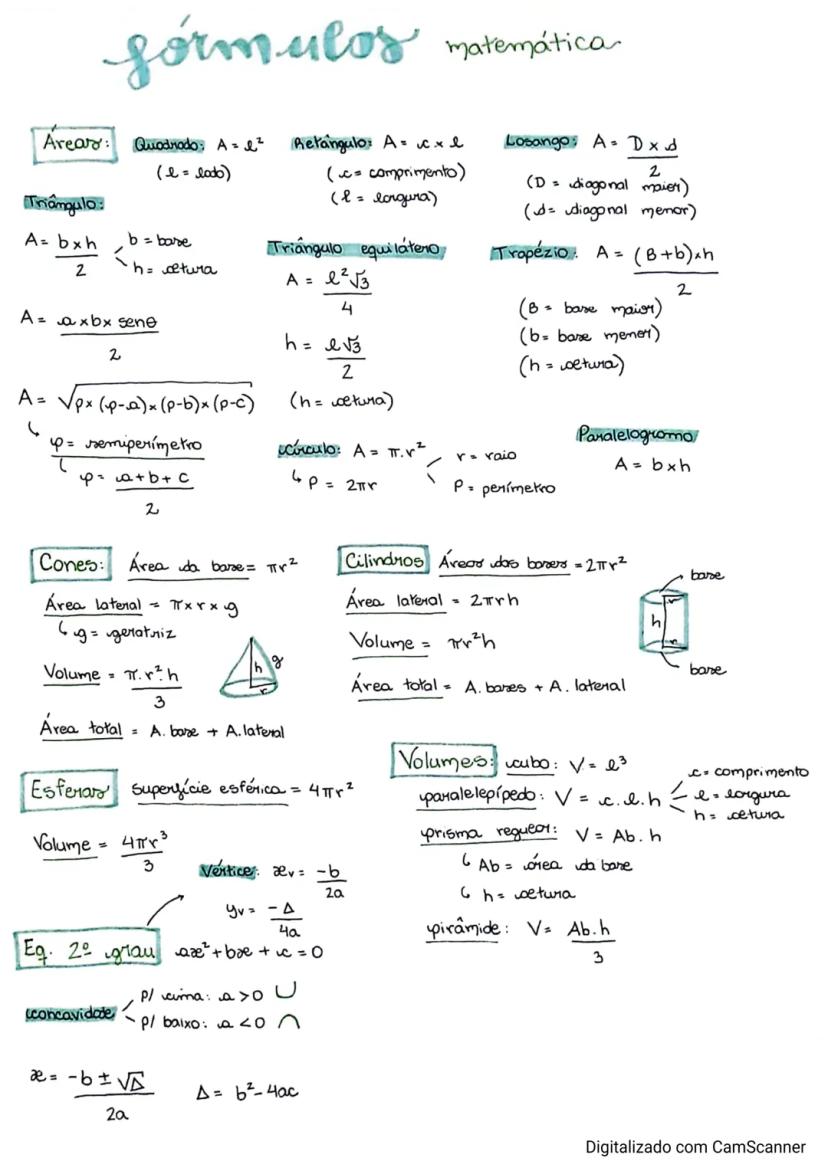 fórmulas matemática
Áreas:
Quadrado: A = l²
(l = lado)
Retângulo: A = c x l
(c = comprimento)
(l = largura)
Losango: A = D x d / 2
(D = diagonal maior)
(d = diagonal menor)
Triângulo:
A = b x h / 2
b = base
h = altura
A = a x b x senθ / 2
A = √p x (p-a) x (p-b) x (p-c)
p = semiperímetro
p = a + b + c / 2
Triângulo equilátero
A = l²√3 / 4
h = l√3 / 2
(h = altura)
Trapézio: A = (B + b) x h / 2
(B = base maior)
(b = base menor)
(h = altura)
Círculo: A = π.r²
P = 2πr
r = raio
P = perímetro
Paralelogramo
A = b x h
Cones: Área da base = πr²
Área lateral = π x r x g
g = geratriz
Volume = π.r².h / 3
h g r
Área total = A. base + A. lateral
Cilindros Áreas das bases = 2πr²
Área lateral = 2πrh
Volume = πr²h
Área total = A. bases + A. lateral
base
r
h
r
base
Esferas superfície esférica = 4πr²
Volume = 4πr³ / 3
Volumes: cubo: V = l³
paralelepípedo: V = c.l.h
c = comprimento
l = largura
h = altura
prisma regular: V = Ab.h
Ab = área da base
h = altura
pirâmide: V = Ab.h / 3
Vértice: xv = -b / 2a
yv = -Δ / 4a
Eq. 2º grau ax² + bx + c = 0
concavidade
p/ cima: a > 0 ∪
p/ baixo: a < 0 ∩
x = -b ± √Δ / 2a
Δ = b² - 4ac
Digitalizado com CamScanner